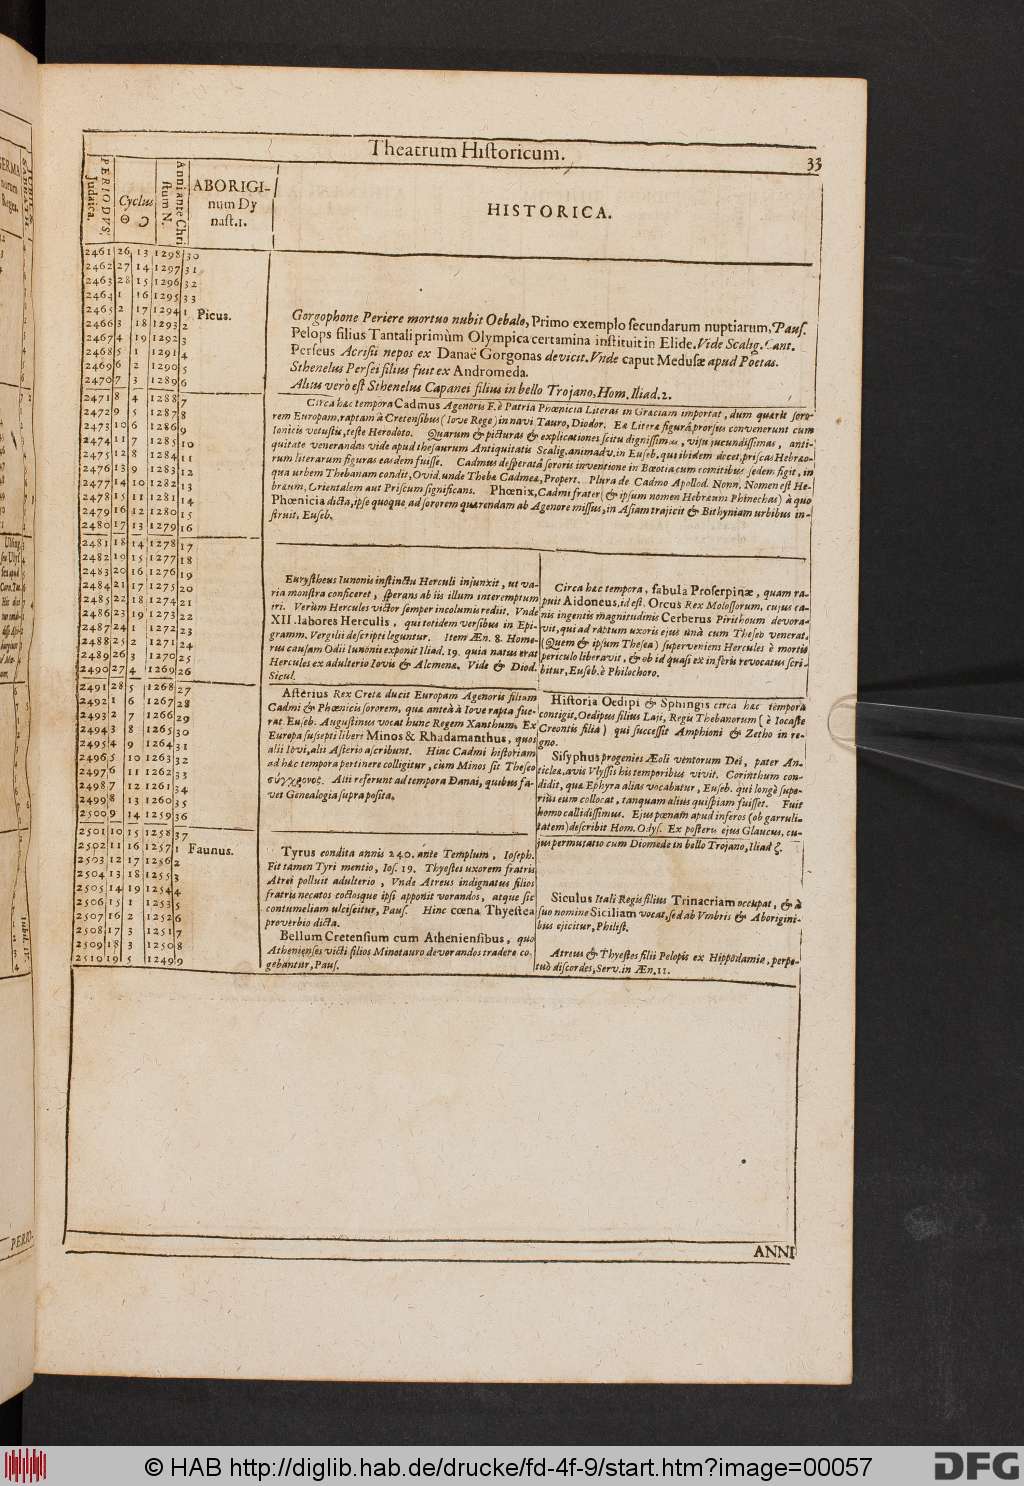 Theatrum Historicum.
33
PERIODVS Judaica.
Cyclus
☉ ☽
Anni ante Chri
stum N.
ABORIGI-
num Dy
nast. 1.
HISTORICA.
2461 26 13 1298 30
2462 27 14 1297 31
2463 28 15 1296 32
2464 1 16 1295 33
2465 2 17 1294 1 Picus.
2466 3 18 1293 2
2467 4 19 1292 3
2468 5 1 1291 4
2469 6 2 1290 5
2470 7 3 1289 6
2471 8 4 1288 7
2472 9 5 1287 8
2473 10 6 1286 9
2474 11 7 1285 10
2475 12 8 1284 11
2476 13 9 1283 12
2477 14 10 1282 13
2478 15 11 1281 14
2479 16 12 1280 15
2480 17 13 1279 16
2481 18 14 1278 17
2482 19 15 1277 18
2483 20 16 1276 19
2484 21 17 1275 20
2485 22 18 1274 21
2486 23 19 1273 22
2487 24 1 1272 23
2488 25 2 1271 24
2489 26 3 1270 25
2490 27 4 1269 26
2491 28 5 1268 27
2492 1 6 1267 28
2493 2 7 1266 29
2494 3 8 1265 30
2495 4 9 1264 31
2496 5 10 1263 32
2497 6 11 1262 33
2498 7 12 1261 34
2499 8 13 1260 35
2500 9 14 1259 36
2501 10 15 1258 37
2502 11 16 1257 1 Faunus.
2503 12 17 1256 2
2504 13 18 1255 3
2505 14 19 1254 4
2506 15 1 1253 5
2507 16 2 1252 6
2508 17 3 1251 7
2509 18 3 1250 8
2510 19 5 1249 9
Gorgophone Periere mortuo nubit Oebalo, Primo exemplo secundarum nuptiarum, Paus.
Pelops filius Tantali primùm Olympica certamina instituit in Elide. Vide Scalig. Cant.
Perseus Acrisii nepos ex Danaë Gorgonas devicit. Vnde caput Medusæ apud Poetas.
Sthenelus Persei filius fuit ex Andromeda.
Alius verò est Sthenelus Capanei filius in bello Trojano, Hom. Iliad. 2.
Circa hæc tempora Cadmus Agenoris F. è Patria Phœnicia Literas in Græciam importat, dum quærit soro-
rem Europam, raptam à Cretensibus (Iove Rege) in navi Tauro, Diodor. Eæ Literæ figurâ prorsus convenerunt cum
Ionicis vetustis, teste Herodoto. Quarum & picturas & explicationes scitu dignissimas, visu jucundissimas, anti-
quitate venerandas vide apud thesaurum Antiquitatis Scalig. animadv. in Euseb. qui ibidem docet, priscas Hebræo-
rum literarum figuras easdem fuisse. Cadmus desperatâ sororis inventione in Bœotia cum comitibus sedem figit, in
qua urbem Thebanam condit, Ovid. unde Thebæ Cadmeæ, Propert. Plura de Cadmo Apollod. Nonn. Nomen est He-
bræum, Orientalem aut Priscum significans. Phœnix, Cadmi frater (& ipsum nomen Hebræum Phinechas) à quo
Phœnicia dicta, ipse quoque ad sororem quærendam ab Agenore missus, in Asiam trajicit & Bithyniam urbibus in-
struit, Euseb.
Eurystheus Iunonis instinctu Herculi injunxit, ut va-
ria monstra conficeret, sperans ab iis illum interemptum
iri. Verùm Hercules victor semper incolumis rediit. Vnde
XII. labores Herculis, qui totidem versibus in Epi-
gramm. Vergilii descripti leguntur. Item Æn. 8. Home-
rus causam Odii Iunonis exponit Iliad. 19. quia natus erat
Hercules ex adulterio Iovis & Alcmenæ. Vide & Diod.
Sicul.
Circa hæc tempora, fabula Proserpinæ, quam ra-
puit Aidoneus, id est. Orcus Rex Molossorum, cujus ca-
nis ingentis magnitudinis Cerberus Pirithoum devora-
vit, qui ad raptum uxoris ejus unà cum Theseo venerat.
(Quem & ipsum Thesea) superveniens Hercules è mortis
periculo liberavit, & ob id quasi ex inferis revocatus scri-
bitur, Euseb. è Philochoro.
Asterius Rex Cretæ ducit Europam Agenoris filiam
Cadmi & Phœnicis sororem, quæ anteà à Iove rapta fue-
rat. Euseb. Augustinus vocat hunc Regem Xanthum. Ex
Europa suscepti liberi Minos & Rhadamanthus, quos
alii Iovi, alii Asterio ascribunt. Hinc Cadmi historiam
ad hæc tempora pertinere colligitur, cùm Minos sit Theseo
σύγχρονος. Alii referunt ad tempora Danai, quibus fa-
vet Genealogia supra posita.
Historia Oedipi & Sphingis circa hæc tempora
contigit, Oedipus filius Laji, Regis Thebanorum (è Iocaste
Creontis filia) qui successit Amphioni & Zetho in re-
gno.
Sisyphus progenies Æoli ventorum Dei, pater An-
ticleæ, avis Vlyssis his temporibus vivit. Corinthum con-
didit, quæ Ephyra alias vocabatur, Euseb. qui longè supe-
rius eum collocat, tanquam alius quispiam fuisset. Fuit
homo callidissimus. Ejus pœnam apud inferos (ob garruli-
tatem) describit Hom. Odys. Ex posteris ejus Glaucus, cu-
jus permutatio cum Diomede in bello Trojano, Iliad ζ.
Tyrus condita annis 240. ante Templum, Ioseph.
Fit tamen Tyri mentio, Ios. 19. Thyestes uxorem fratris
Atrei polluit adulterio, Vnde Atreus indignatus filios
fratris necatos coctosque ipsi apponit vorandos, atque sic
contumeliam ulciscitur, Paus. Hinc cœna Thyestea
proverbio dicta.
Bellum Cretensium cum Atheniensibus, quo
Athenienses victi filios Minotauro devorandos tradere co-
gebantur, Paus.
Siculus Itali Regis filius Trinacriam occupat, & à
suo nomine Siciliam vocat, sed ab Vmbris & Aborigini-
bus ejicitur, Philist.
Atreus & Thyestes filii Pelopis ex Hippodamia, perpe-
tuò discordes, Serv. in Æn. 11.
ANNI
PERIO-
© HAB http://diglib.hab.de/drucke/fd-4f-9/start.htm?image=00057
DFG